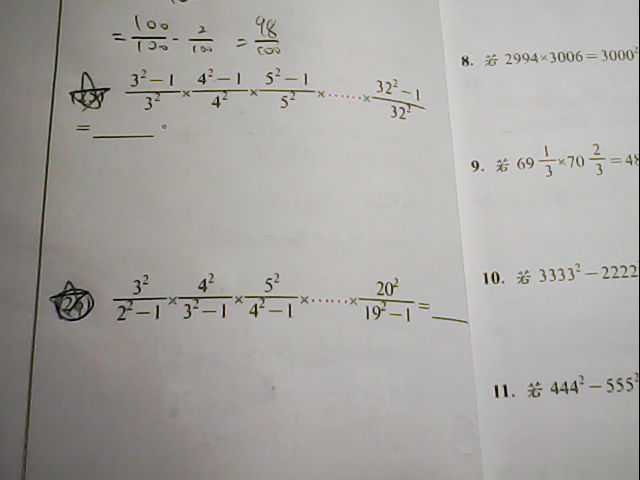 = 100/100 - 2/100 = 98/100
(3²−1)/3² × (4²−1)/4² × (5²−1)/5² × …… × (32²−1)/32²
= ______ 。
3²/(2²−1) × 4²/(3²−1) × 5²/(4²−1) × …… × 20²/(19²−1) = ____
8. 若 2994×3006=3000²
9. 若 69 1/3 ×70 2/3 =48
10. 若 3333²−2222²
11. 若 444²−555²